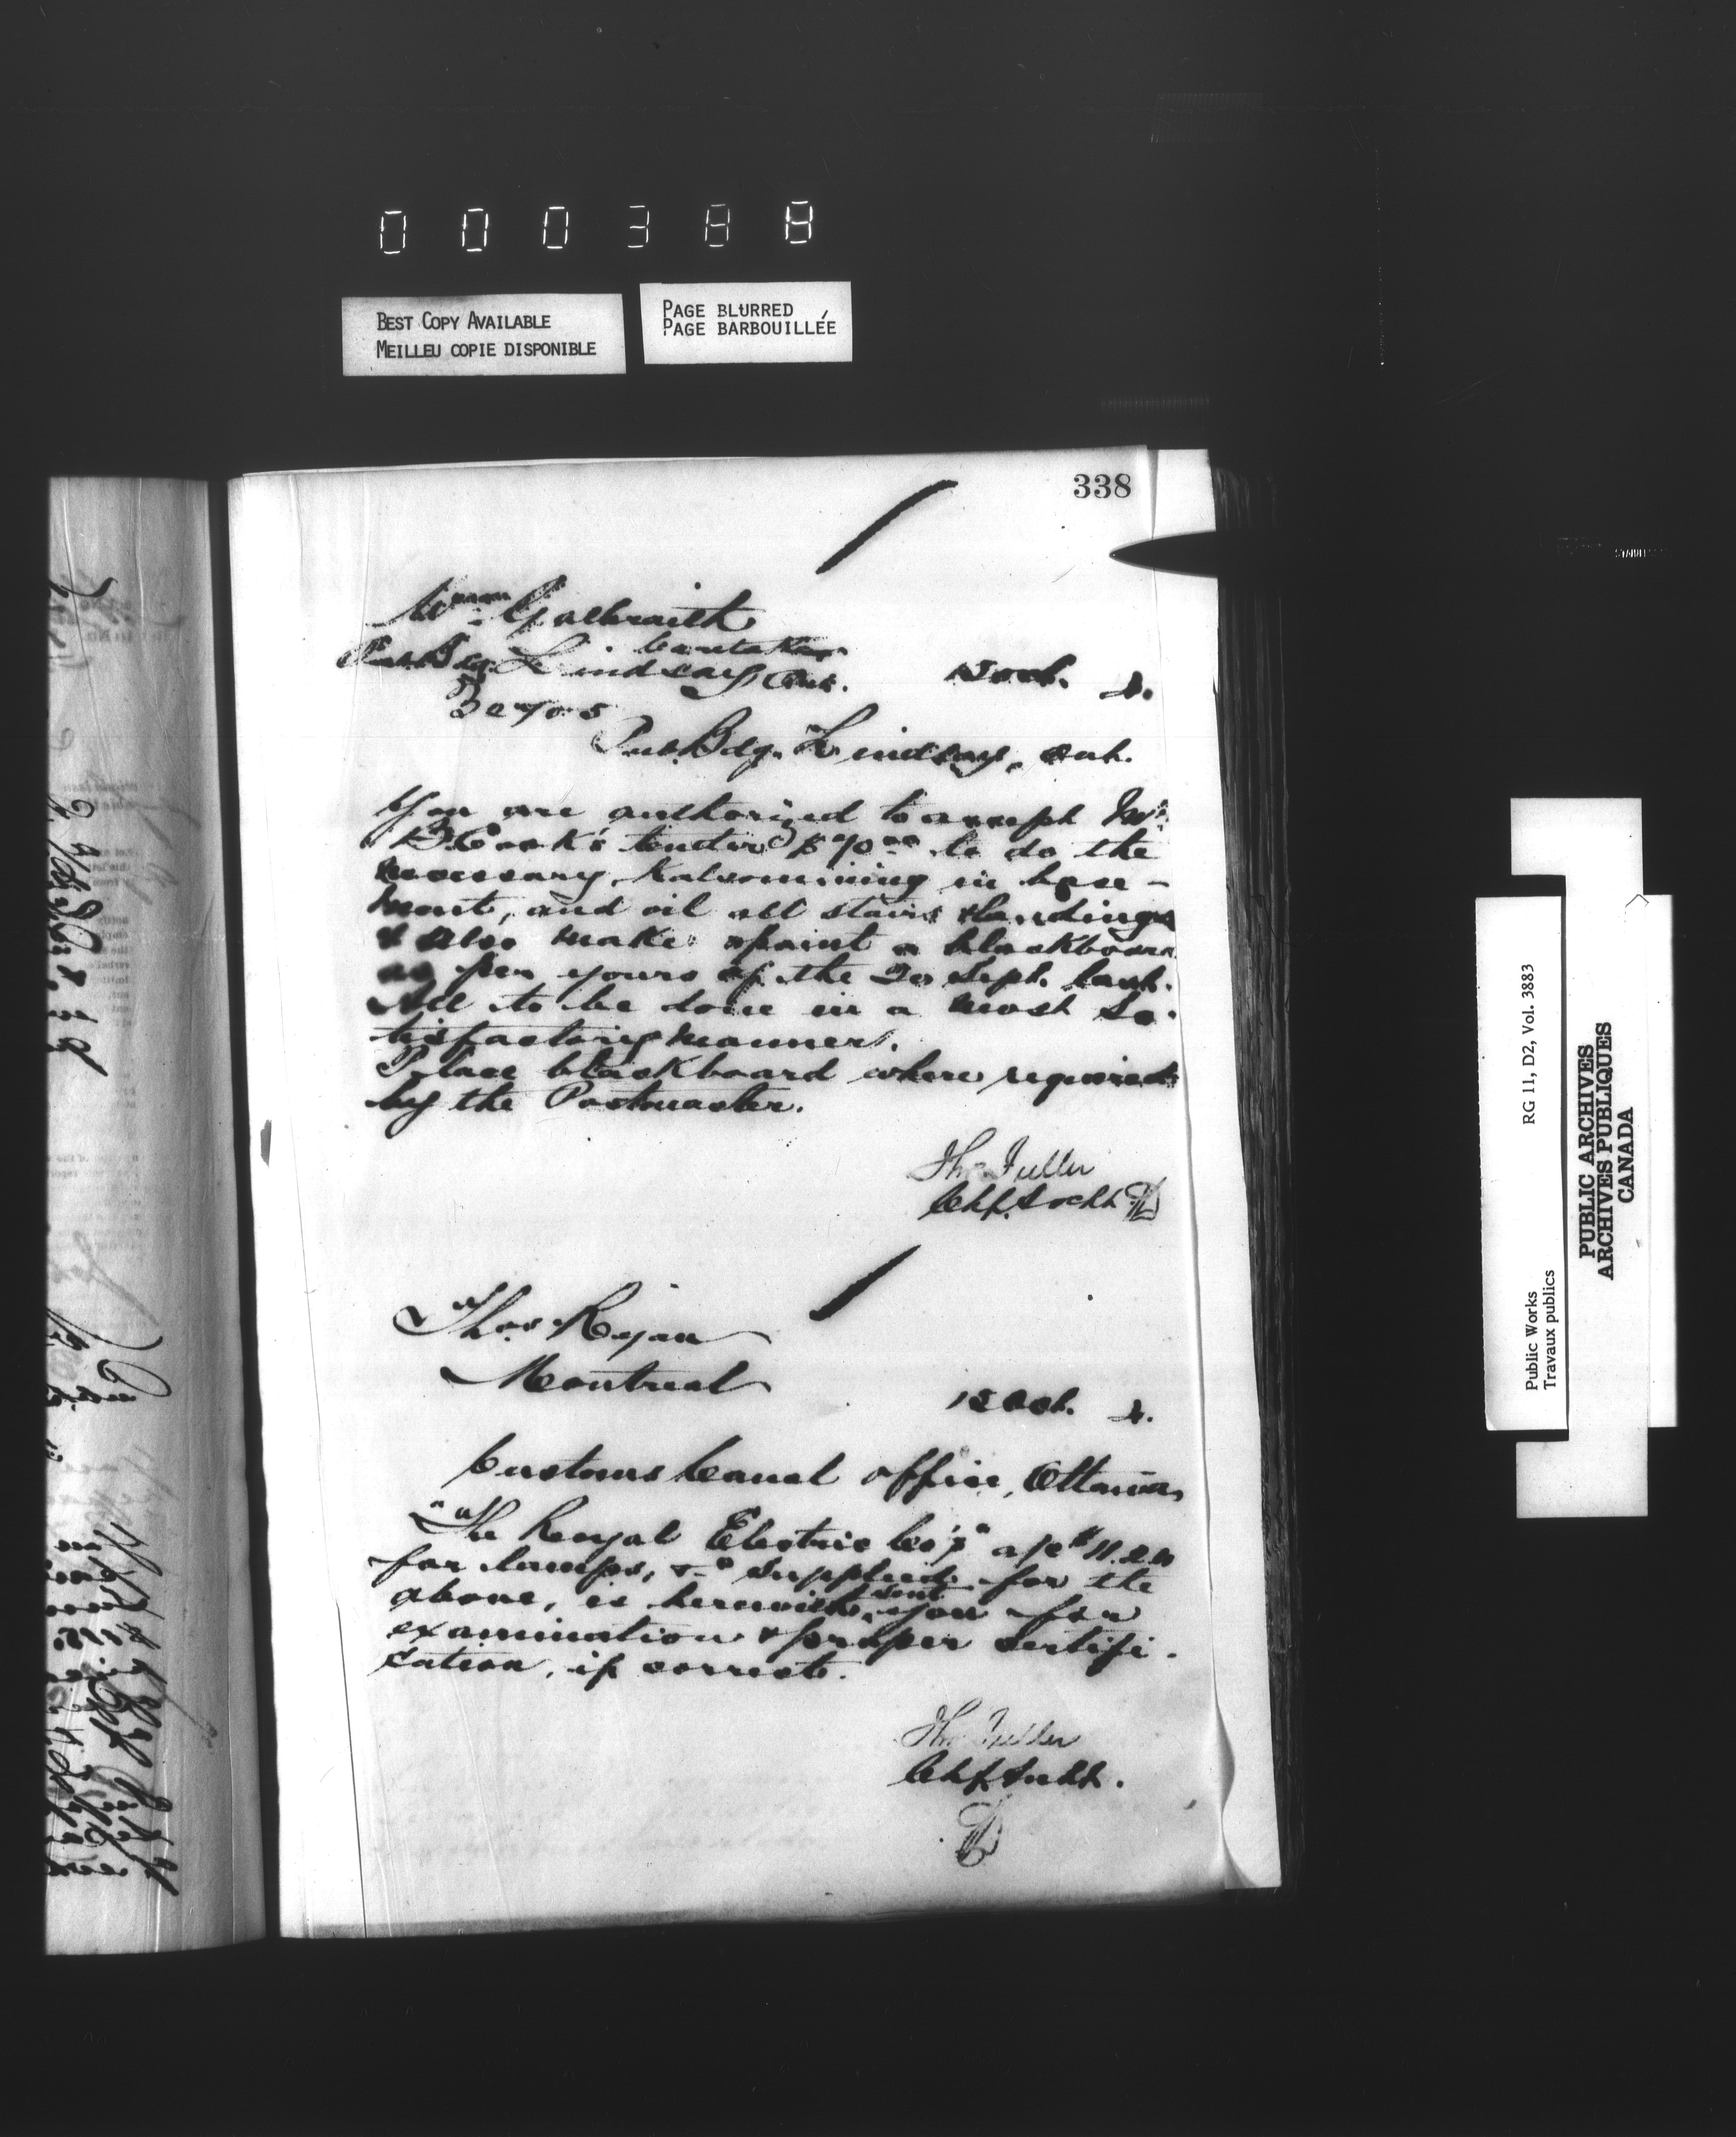 000388
BEST COPY AVAILABLE
MEILLEU COPIE DISPONIBLE
PAGE BLURRED
PAGE BARBOUILLÉE
338
Wm Galbraith
Caretaker
Pub. Bdg. Lindsay, Ont.
15 Oct. 4.
Pub. Bdg. Lindsay, Ont.
You are authorized to accept Mr.
B. Cook's tender $ to do the
necessary Kalsomining in base-
ment, and oil all stairs & landings
& also make & paint a blackboard
as per yours of the 20 Sept. last.
All to be done in a most sa-
tisfactory manner.
Place blackboard where required
by the Postmaster.
Thos Fuller
Chf. Archt.
Thos Ryan
Montreal
15 Oct. 4.
Customs Canal Office, Ottawa
"The Royal Electric Co'y" a/c
for lamps, &c supplied for the
above, is herewith sent you for
examination & proper certifi-
cation, if correct.
Thos Fuller
Chf Archt.
Public Works
Travaux publics
RG 11, D2, Vol. 3883
PUBLIC ARCHIVES
ARCHIVES PUBLIQUES
CANADA